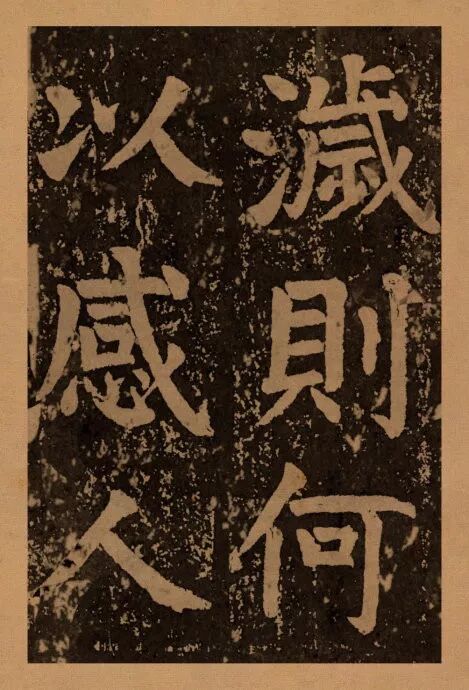 濊則何
以感人